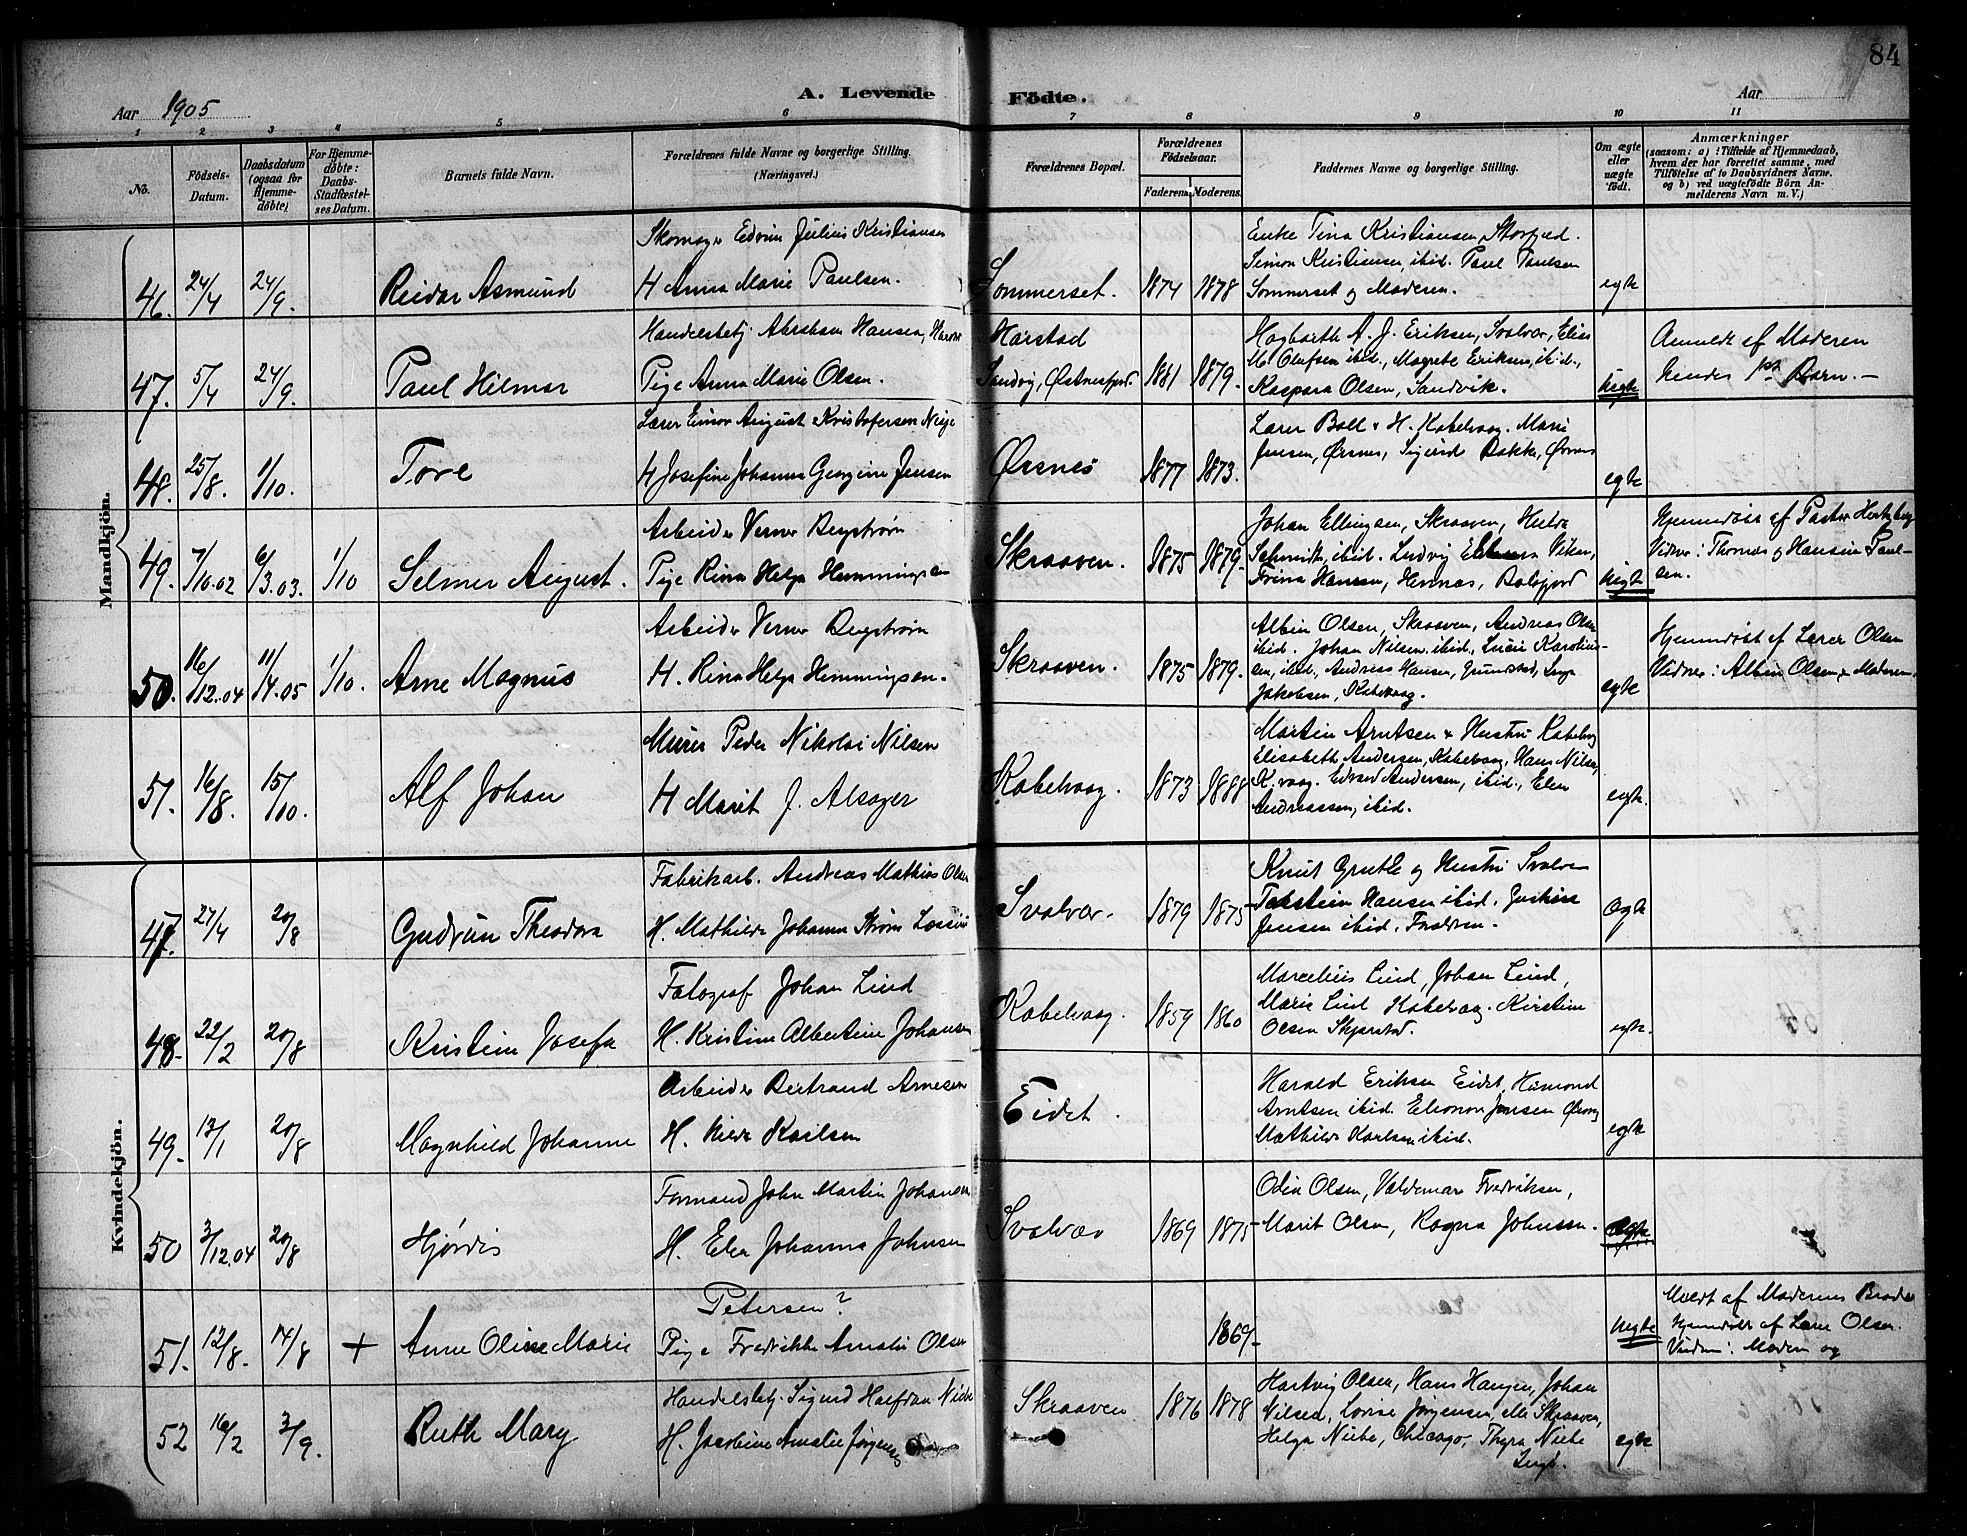 84
A. Levende Födte.
Aar 1905
Aar
1 2 3 4 5 6 7 8 9 10 11
No.
Födsels-Datum.
Daabsdatum (ogsaa for Hjemme-döbte).
For Hjemme-döbte: Daabs-Stadfæstel-ses Datum.
Barnets fulde Navn.
Forældrenes fulde Navne og borgerlige Stilling. (Næringsvei.)
Forældrenes Bopæl.
Forældrenes Födselsaar.
Faderens. Moderens.
Faddernes Navne og borgerlige Stilling.
Om ægte eller uægte födt.
Anmærkninger
(saasom: a) i Tilfælde af Hjemmedaab,
hvem der har forrettet samme, med
Tilföielse af to Daabsvidners Navne,
og b) ved uægtefödte Börn An-
melderens Navn m. V.)
Mandkjön.
46. 24/4 24/9. Reidar Asmund
Skomager Edvin Julius Kristiansen
H Anna Marie Paulsen.
Sommerset. 1874 1878
Enke Tina Kristiansen, Storfjed.
Simon Kristiansen, ibid. Paul Paulsen
Sommerset og Moderen.
egte
47. 5/4 24/9. Paul Hilmar
Handelsbetj. Abraham Hansen,
Pige Anna Marie Olsen.
Harstad
Sandvig, Østnesfjord. 1881 1879.
Hagbarth A. J. Eriksen, Svolvær, Elias
M. Olufsen ibid., Magrete Eriksen, ibid.,
Kaspara Olsen, Sandvik.
uegte
Anmeldt af Moderen
hendes 1ste Barn.
48. 25/8. 1/10. Tore
Lærer Einar August Kristofersen
H Josefine Johanna Georgine Jensen
Ørsnes 1877 1873.
Lærer Boll & H. Kabelvaag. Marie
Jensen, Ørsnes, Sigurd Bakke, Ørsnes
egte
49. 7/10.02 6/3.03. 1/10 Selmer August.
Arbeider Verner Bergstrøm
Pige Rina Helga Hemmingsen
Skraaven. 1875 1879.
Johan Ellingsen, Skraaven, Hulda
Schmidt, ibid. Ludvig
Trina Hansen, Hennes,
uegte
Hjemmdøbt af Pastor Hertzberg
Vidner: Thomas og Hansine Paul-
sen.
50. 16/12.04 11/4.05 1/10. Arne Magnus
Arbeider Verner Bergstrøm
H. Rina Helga Hemmingsen.
Skraaven. 1875 1879.
Albin Olsen, Skraaven, Andreas Olsen
ibid. Johan Nilsen ibid., Lucie Karolius-
sen, ibid, Andreas Hansen, Grundstad, Inga
Jakobsen, Kabelvaag.
egte
Hjemmdøbt af Lærer Olsen
Vidner: Albin Olsen & Moderen.
51. 16/8. 15/10. Alf Johan
Murer Peder Nikolai Nilsen
H Marit J. Alsager
Kabelvaag. 1873 1888
Martin Arntsen & Hustru Kabelvag
Elisabeth Andersen, Kabelvaag, Hans Nilsen,
K.vaag. Edvard Andersen, ibid., Elen
Andreassen, ibid.
egte.
Kvindekjön.
47. 27/4 20/8 Gudrun Theodora
Fabrikarb. Andreas Mathias Olsen
H. Mathilde Johanna Strøm
Svolvær. 1879 1875
Knut Grutle og Hustru Svolvær
Torstein Hansen ibid. Justine
Jensen ibid. Foreldren.
egte
48. 22/2 20/8 Kristine Josefa
Fotograf Johan Lind
H. Kristine Albertine Johansen
Kabelvaag. 1859 1860
Marcelius Lind, Johan Lind,
Marie Lind Kabelvaag. Kirstine
Olsen Skjerstad.
egte.
49. 13/1 20/8 Magnhild Johanne
Arbeider Bertrand Arnesen
H. Hilda Karlsen
Eidet.
Harald Eriksen Eidet,
Arntsen ibid. Eleonora Jensen
Mathilde Karlsen ibid.
egte
50 3/12.04 20/8 Hjørdis
Formand John Martin Johansen
H. Elen Johanna Johnsen
Svolvær 1869 1875
Odin Olsen, Valdemar Fredriksen,
Marit Olsen, Ragna Johnsen.
egte
51. 12/8. 14/8 + Anne Oline Marie
Petersen?
Pige Fredrikke Amalie Olsen
1869
uegte
Meldt af Moderens Broder
Hjemmdøbt af Lærer Olsen.
Vidner: Moderen og
52 16/2 3/9. Ruth Mary
Handelsbetj. Sigurd Halfdan
H. Jacobine Amalie Jørgensen
Skraaven 1876 1878
Hartvig Olsen, Hans Hansen, Johan
Nilsen, Lovise Jørgensen, alle Skraaven,
Helga Niebe, Chicago, Thyra Niebe
egte